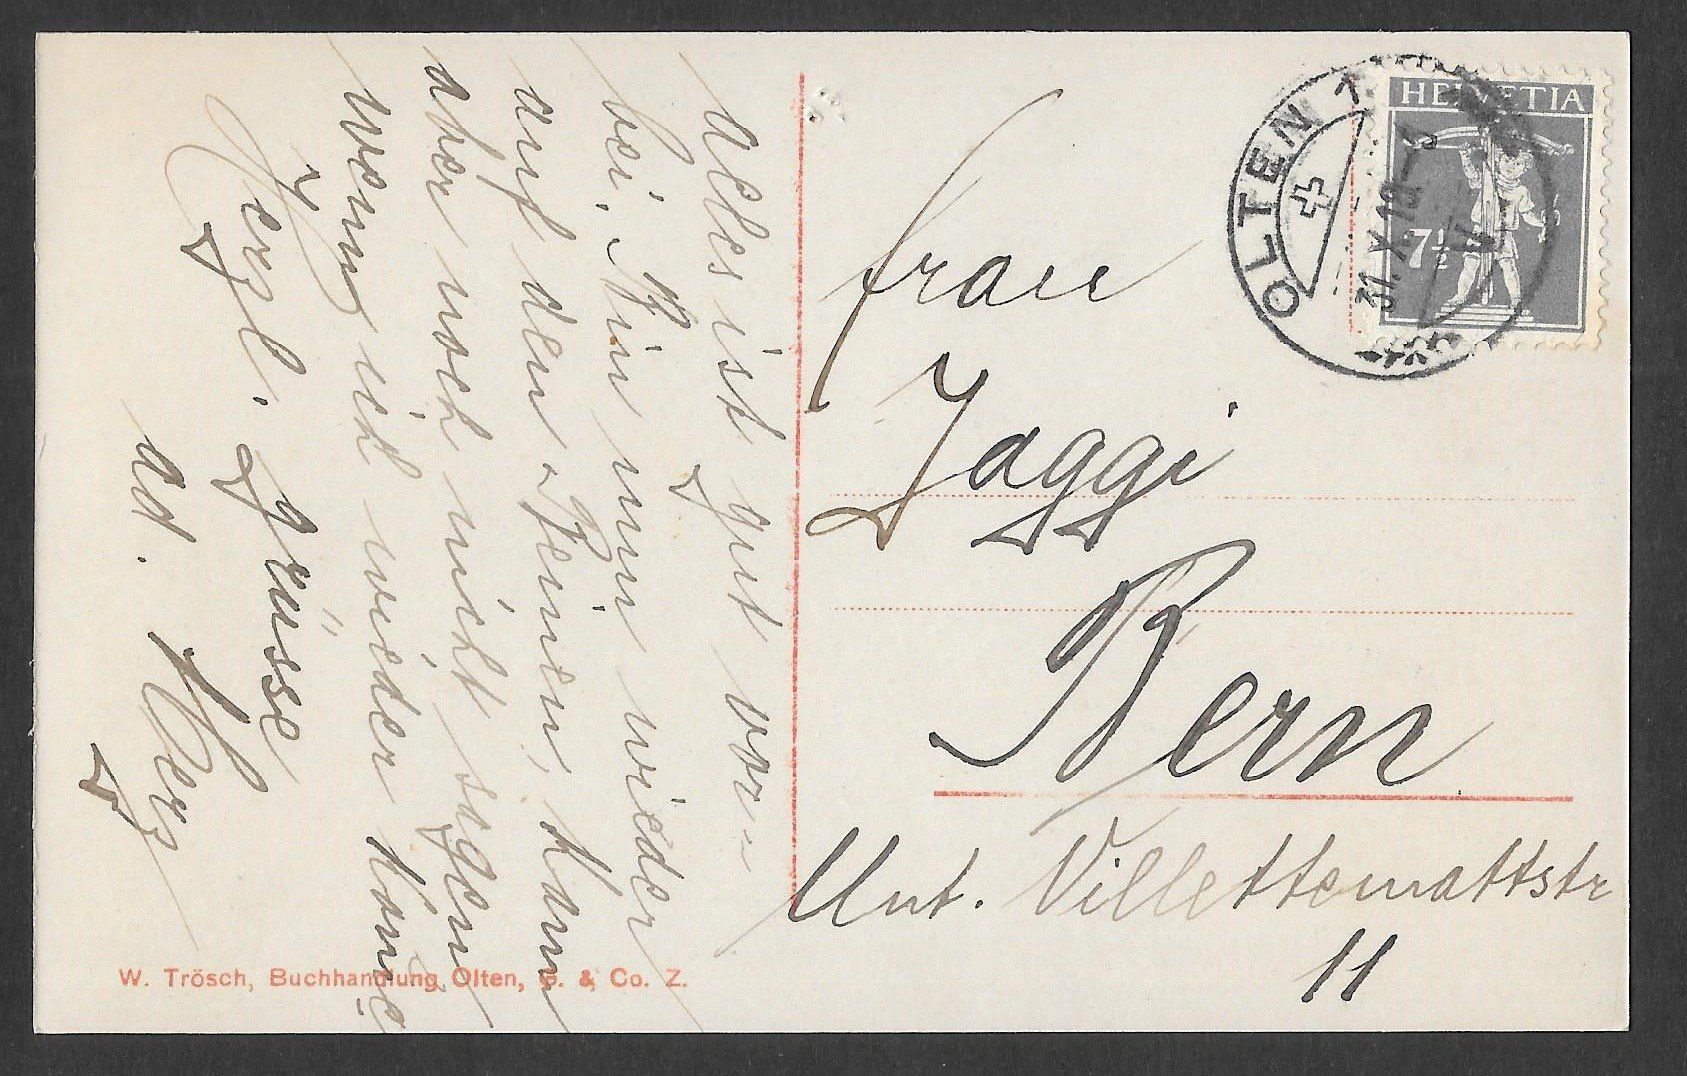 Alles ist gut vor-
bei. Bin nun wieder
auf den Beinen, kann
aber noch nicht sagen
wenn ich wieder kome
Herzl. Grüsse
Ad. Herz
Frau
Jaggi
Bern
Unt. Villettemattstr
11
HELVETIA
7½
OLTEN 1
31.X.18
W. Trösch, Buchhandlung Olten, G. & Co. Z.